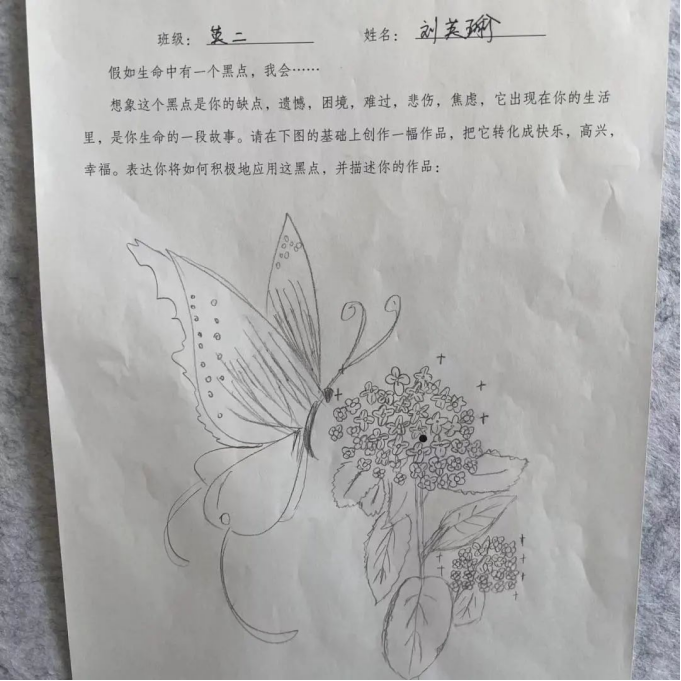 班级：英二 姓名：刘芙瑜
假如生命中有一个黑点，我会……
想象这个黑点是你的缺点，遗憾，困境，难过，悲伤，焦虑，它出现在你的生活
里，是你生命的一段故事。请在下图的基础上创作一幅作品，把它转化成快乐，高兴，
幸福。表达你将如何积极地应用这黑点，并描述你的作品：